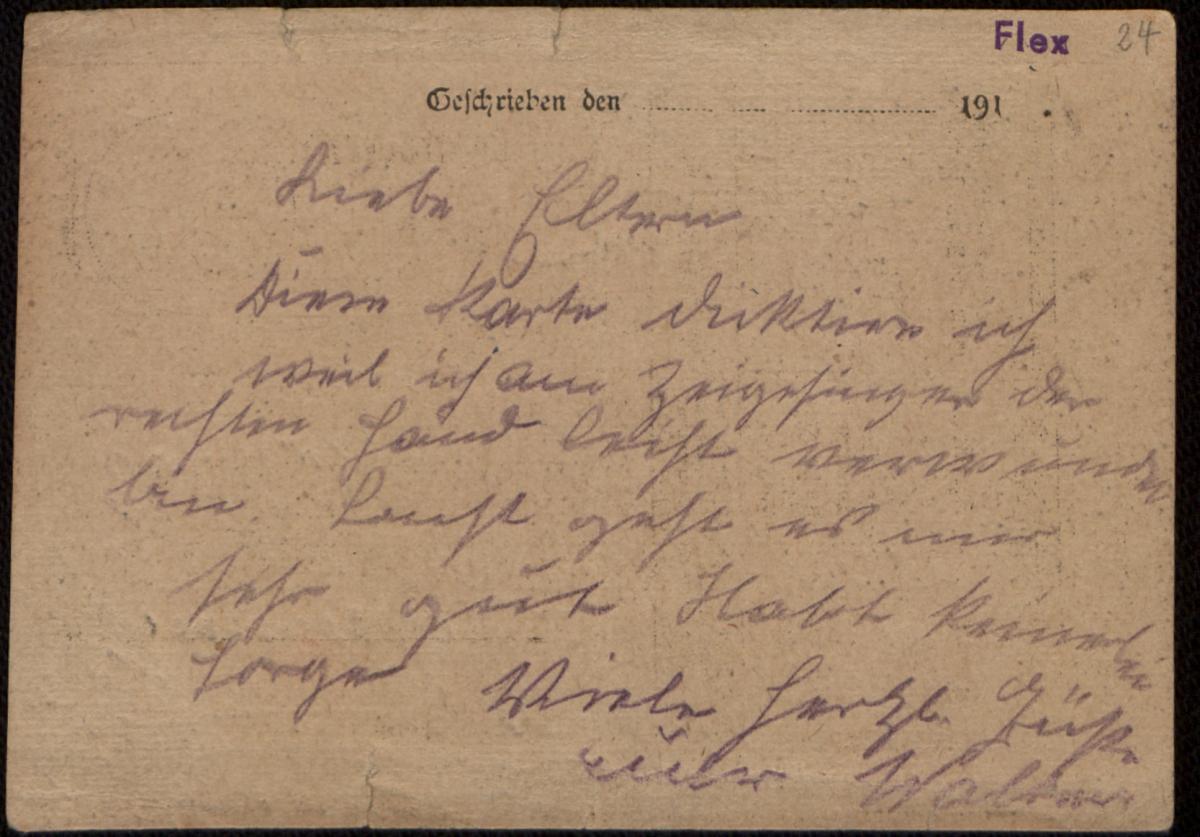 Flex 24
Geschrieben den 191 .
Liebe Eltern
Diese Karte diktiere ich
weil ich am Zeigefinger der
rechten Hand leicht verwundet
bin. Sonst geht es mir
sehr gut Habt keinerlei
Sorge Viele herzl. Grüße
euer Walter